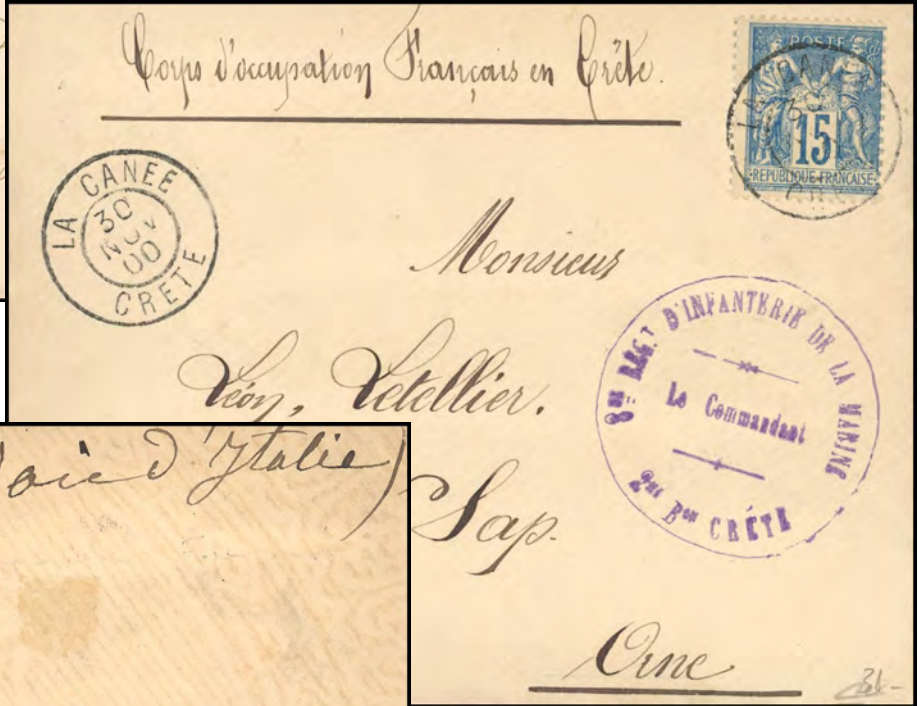 Corps d'occupation Français en Crête.
POSTES
LA CANEE
15
REPUBLIQUE FRANÇAISE
LA CANEE
30
NOV
00
CRETE
Monsieur
Léon, Letellier.
8ME RÉGT D'INFANTERIE DE LA MARINE
Le Commandant
2me Bon CRÉTE
d'Italie)
Sap.
Orne